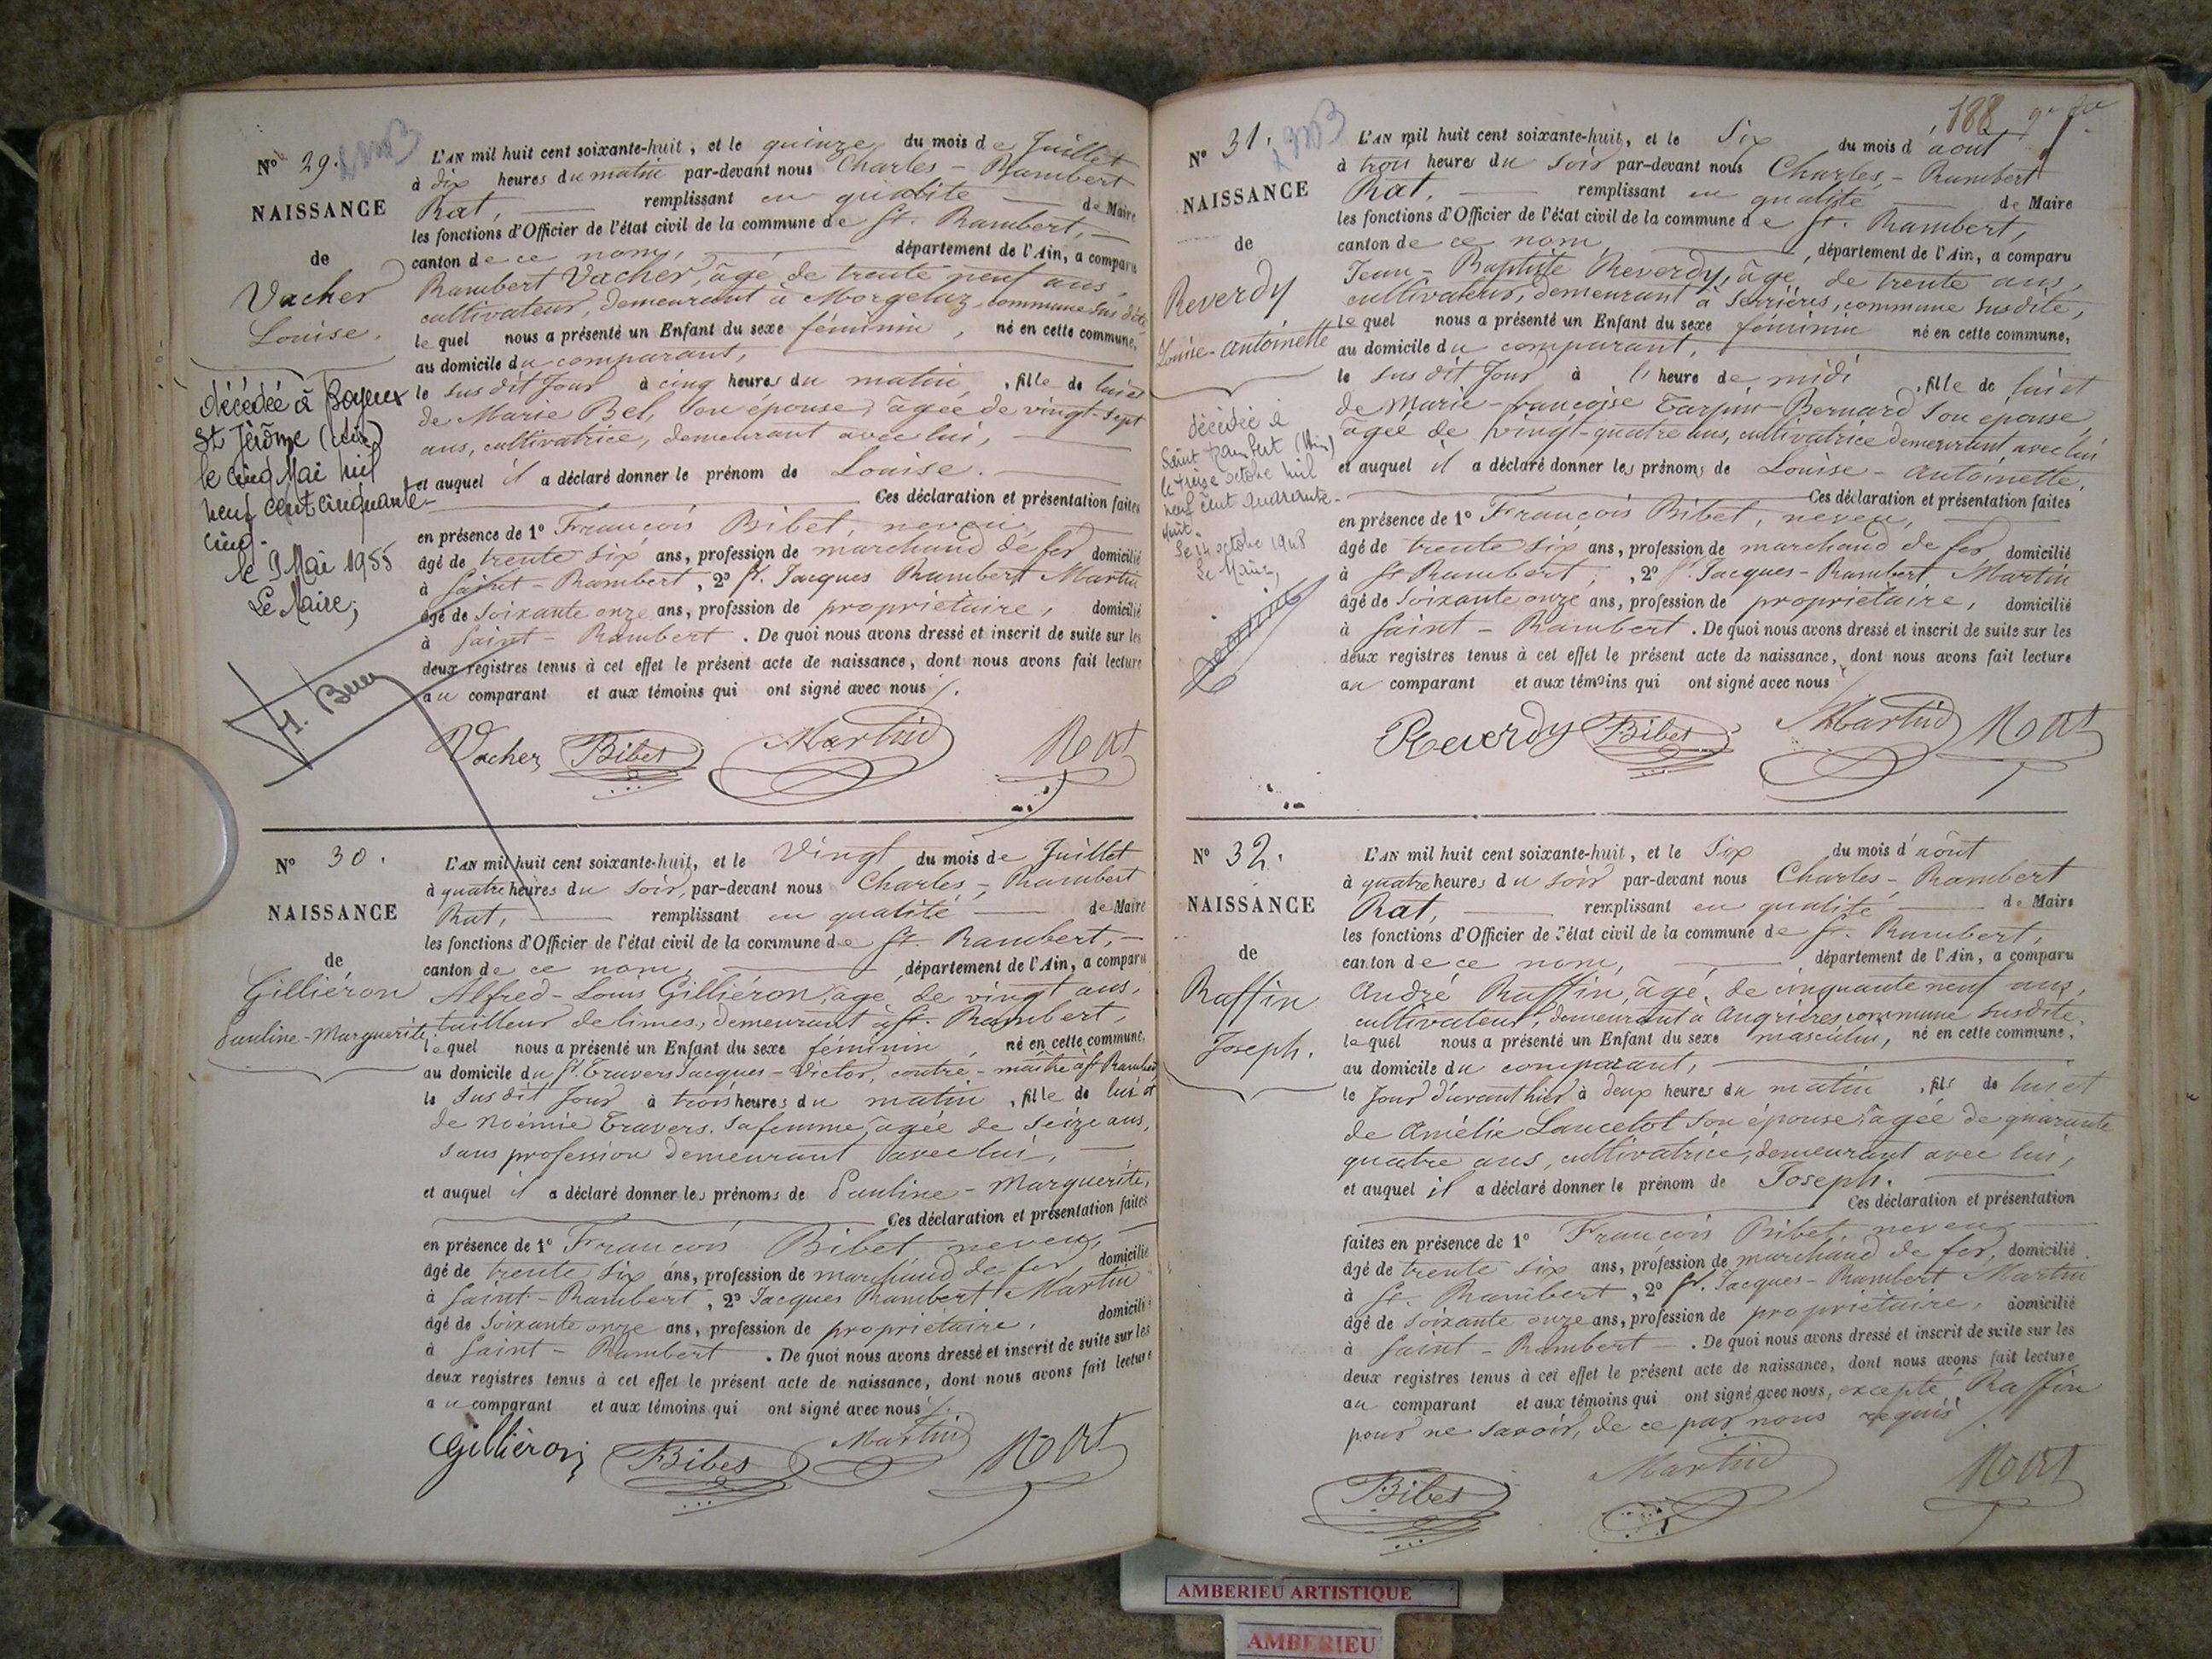 N° 29.
NAISSANCE
de
Vacher
Louise.
décédée à Boyeux
St Jérôme (Ain)
le cinq Mai mil
neuf cent cinquante-
cinq.
le 9 Mai 1955
Le Maire,
L'AN mil huit cent soixante-huit, et le quinze du mois de Juillet
à dix heures du matin par-devant nous Charles-Rambert
Rat, remplissant en qualité de Maire
les fonctions d'Officier de l'état civil de la commune de St. Rambert,
canton de ce nom, département de l'Ain, a comparu
Rambert Vacher, âgé de trente neuf ans,
cultivateur, demeurant à Morgelaz, commune sus dite
le quel nous a présenté un Enfant du sexe féminin, né en cette commune,
au domicile du comparant,
le sus dit Jour à cinq heures du matin, fille de lui et
de Marie Bel, son épouse, âgée de vingt-sept
ans, cultivatrice, demeurant avec lui,
et auquel il a déclaré donner le prénom de Louise.
Ces déclaration et présentation faites
en présence de 1° François Bibet, neveu,
âgé de trente six ans, profession de marchand de fer domicilié
à Saint-Rambert, 2° St. Jacques Rambert Martin
âgé de soixante onze ans, profession de propriétaire, domicilié
à Saint-Rambert. De quoi nous avons dressé et inscrit de suite sur les
deux registres tenus à cet effet le présent acte de naissance, dont nous avons fait lecture
au comparant et aux témoins qui ont signé avec nous.
Vacher Bibet Martin Rat
N° 30.
NAISSANCE
de
Gilliéron
Pauline-Marguerite
L'AN mil huit cent soixante-huit, et le Vingt du mois de Juillet
à quatre heures du soir, par-devant nous Charles-Rambert
Rat, remplissant en qualité de Maire
les fonctions d'Officier de l'état civil de la commune de St. Rambert,
canton de ce nom, département de l'Ain, a comparu
Alfred-Louis Gilliéron, âgé de vingt ans,
tailleur de limes, demeurant à St. Rambert,
lequel nous a présenté un Enfant du sexe féminin, né en cette commune,
au domicile du St. Travers Jacques-Victor, contre-maître à St Rambert
le sus dit Jour à trois heures du matin, fille de lui et
de Noémie Travers, sa femme, âgée de seize ans,
sans profession demeurant avec lui,
et auquel il a déclaré donner les prénoms de Pauline-Marguerite,
Ces déclaration et présentation faites
en présence de 1° François Bibet neveu,
âgé de trente six ans, profession de marchand de fer, domicilié
à Saint-Rambert, 2° Jacques Rambert Martin
âgé de soixante onze ans, profession de propriétaire, domicilié
à Saint-Rambert. De quoi nous avons dressé et inscrit de suite sur les
deux registres tenus à cet effet le présent acte de naissance, dont nous avons fait lecture
au comparant et aux témoins qui ont signé avec nous.
Gilliéron Bibet Martin Rat
188
N° 31.
NAISSANCE
de
Reverdy
Louise-Antoinette
décédée à
Saint Rambert (Ain)
le treize octobre mil
neuf cent quarante-
huit.
Le 14 octobre 1948
Le Maire,
L'AN mil huit cent soixante-huit, et le Six du mois d'août
à trois heures du soir par-devant nous Charles-Rambert
Rat, remplissant en qualité de Maire
les fonctions d'Officier de l'état civil de la commune de St. Rambert,
canton de ce nom, département de l'Ain, a comparu
Jean-Baptiste Reverdy, âgé de trente ans,
cultivateur, demeurant à Serrières, commune susdite,
le quel nous a présenté un Enfant du sexe féminin né en cette commune,
au domicile du comparant,
le sus dit Jour à l'heure de midi, fille de lui et
de Marie-françoise Tarpin-Bernard son épouse,
âgée de vingt-quatre ans, cultivatrice demeurant avec lui
et auquel il a déclaré donner les prénoms de Louise-Antoinette.
Ces déclaration et présentation faites
en présence de 1° François Bibet, neveu,
âgé de trente six ans, profession de marchand de fer domicilié
à St Rambert, 2° St. Jacques-Rambert, Martin
âgé de soixante onze ans, profession de propriétaire, domicilié
à Saint-Rambert. De quoi nous avons dressé et inscrit de suite sur les
deux registres tenus à cet effet le présent acte de naissance, dont nous avons fait lecture
au comparant et aux témoins qui ont signé avec nous
Reverdy Bibet Martin Rat
N° 32.
NAISSANCE
de
Raffin
Joseph.
L'AN mil huit cent soixante-huit, et le Six du mois d'août
à quatre heures du soir par-devant nous Charles-Rambert
Rat, remplissant en qualité de Maire
les fonctions d'Officier de l'état civil de la commune de St. Rambert,
canton de ce nom, département de l'Ain, a comparu
André Raffin, âgé de cinquante neuf ans,
cultivateur, demeurant à Angrières commune susdite.
lequel nous a présenté un Enfant du sexe masculin, né en cette commune,
au domicile du comparant,
le Jour d'avant hier à deux heures du matin, fils de lui et
de Amélie Lancelot son épouse, âgée de quarante
quatre ans, cultivatrice, demeurant avec lui,
et auquel il a déclaré donner le prénom de Joseph.
Ces déclaration et présentation
faites en présence de 1° François Bibet neveu
âgé de trente six ans, profession de marchand de fer, domicilié
à St. Rambert, 2° St. Jacques-Rambert Martin
âgé de soixante onze ans, profession de propriétaire, domicilié
à Saint-Rambert. De quoi nous avons dressé et inscrit de suite sur les
deux registres tenus à cet effet le présent acte de naissance, dont nous avons fait lecture
au comparant et aux témoins qui ont signé avec nous, excepté Raffin
pour ne savoir, de ce par nous requis.
Bibet Martin Rat
AMBERIEU ARTISTIQUE
AMBERIEU